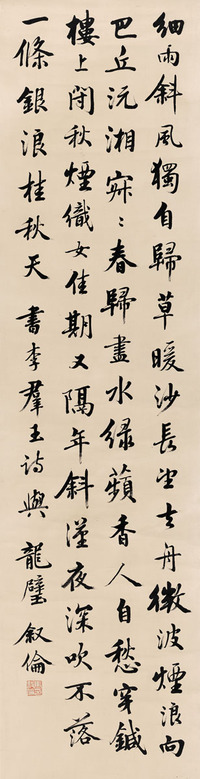 細雨斜風獨自歸草暖沙長望去舟微波煙浪向
巴丘沅湘寂〻春歸盡水綠蘋香人自愁穿鍼
樓上閉秋煙織女佳期又隔年斜漢夜深吹不落
一條銀浪挂秋天 書李羣玉詩與 龍璧 叙倫